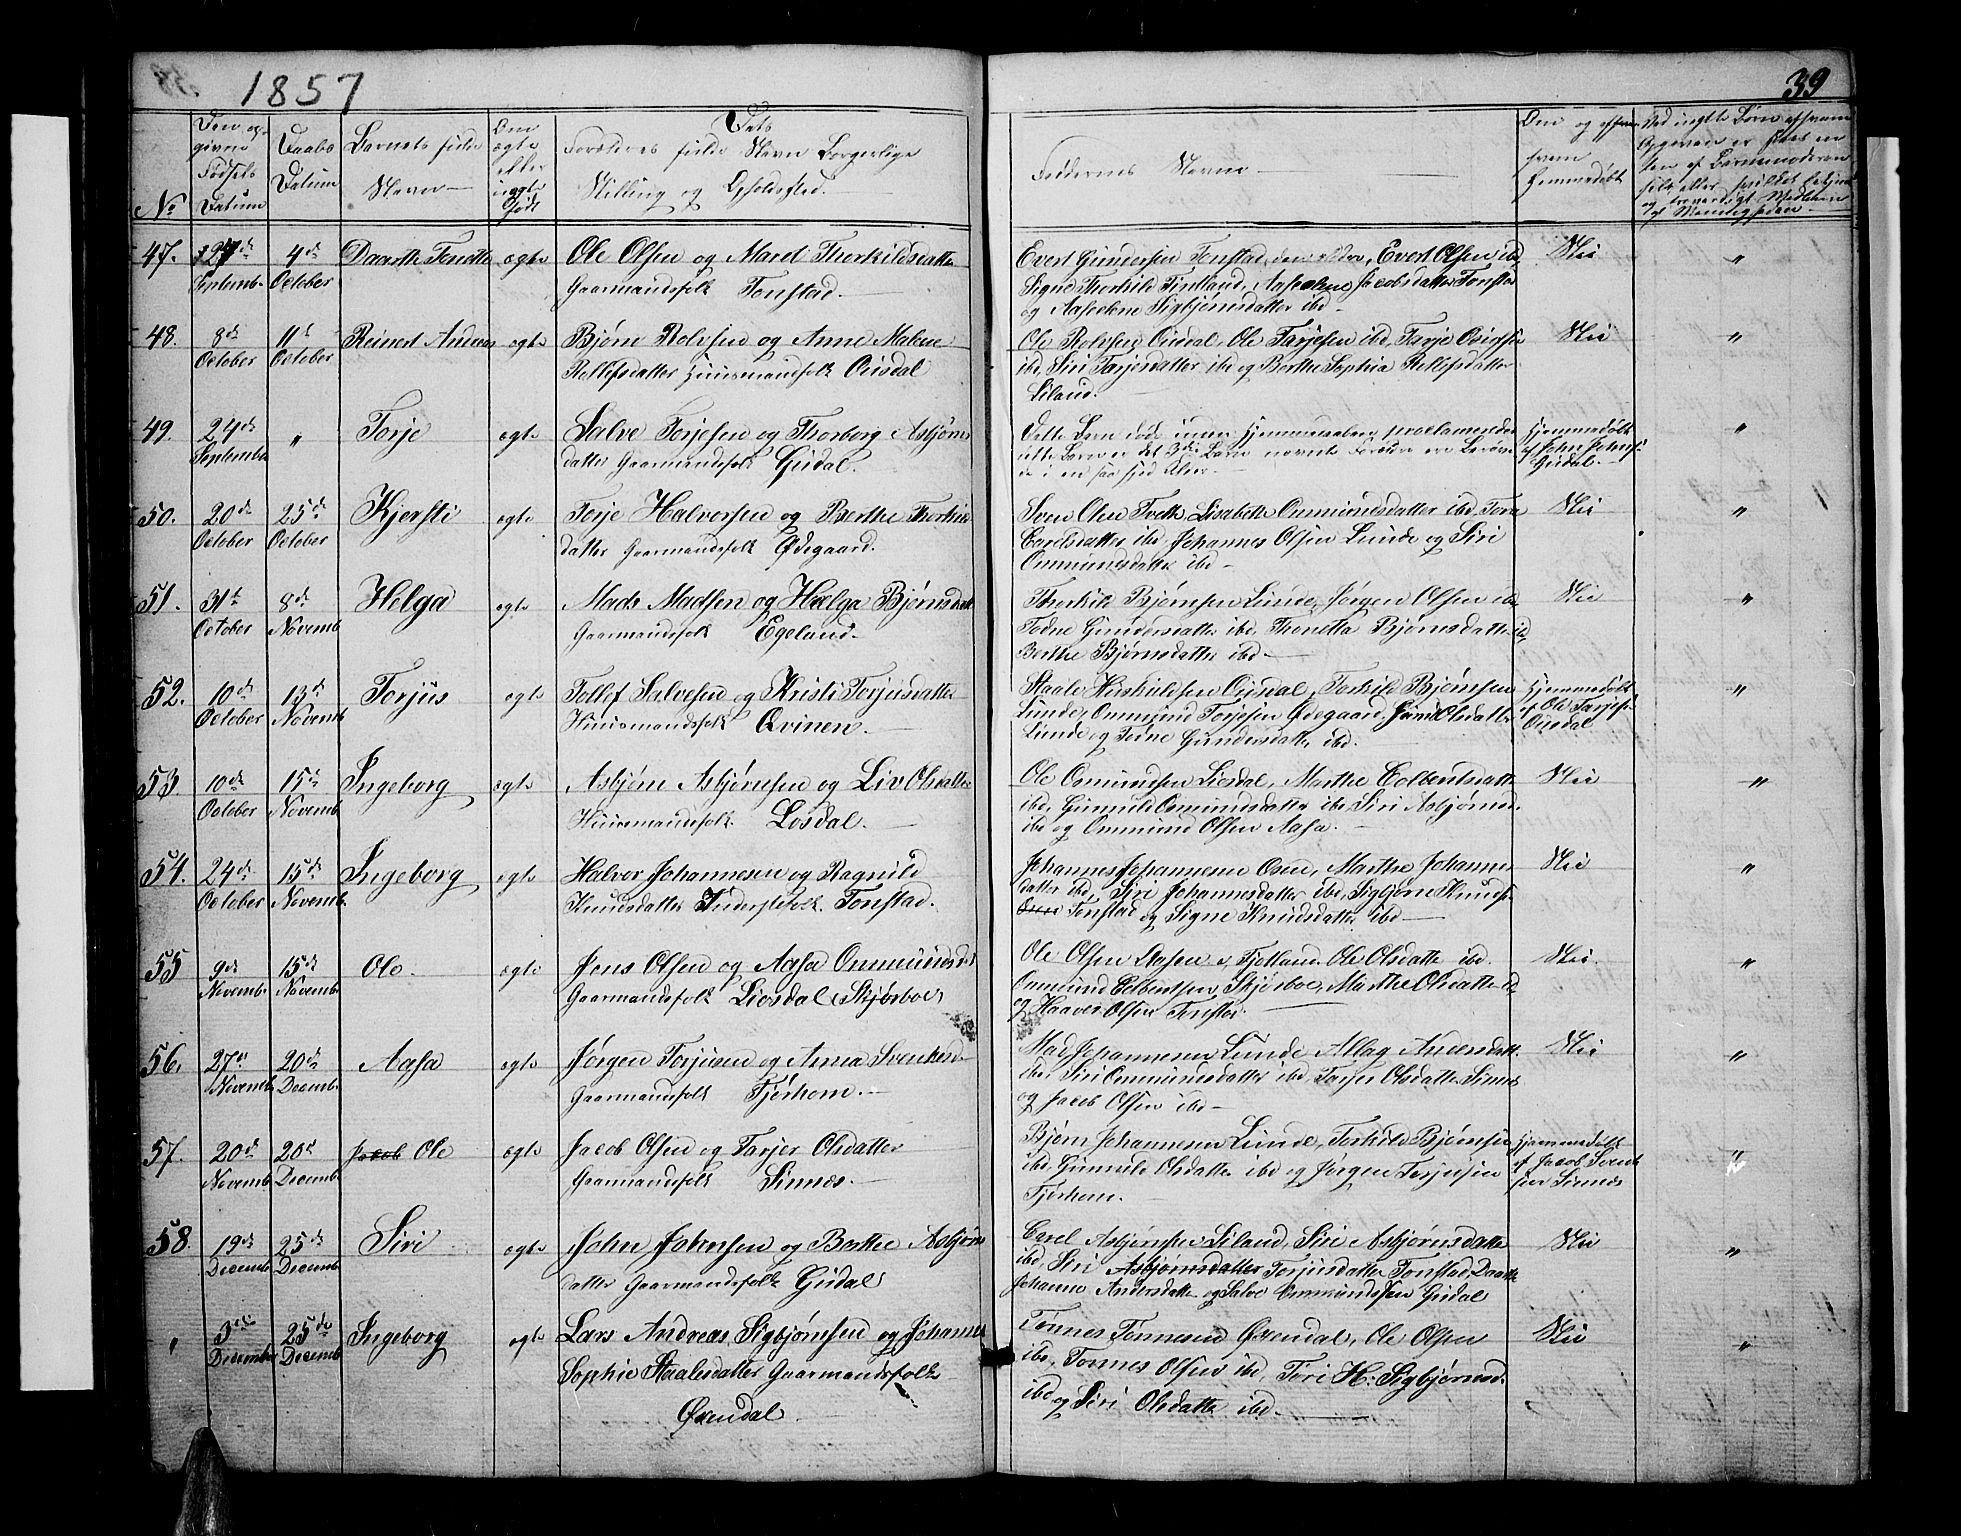 1857
39
No
Den op-
givne
Fødsels
Datum
Daabs
Datum
Barnets fulde
Navn
Om
ægte
eller
uægte
født
Forældres fulde Navn Borgerlige
Stilling og Opholdssted.
Faddernes Navne
Om og af
hvem
hjemmedøbt
47.
27de
Septemb.
4de
October
ægte
Ole Olsen og Maret Thorkildsdatter
Gaarmandsfolk Tonstad.
Evert Gundersen Tonstad, den ældre, Evert Olsen ibd,
Signe Thorkilds Fintland, Jacobsdatter Tonstad
og Sigbjørnsdatter ibd
Nei
"
48.
8de
October
11te
October
Reinert Andreas
ægte
Bjørn Rolvsen og Anne Malene
Rellefsdatter Huusmandsfolk Ousdal
Ole Rolvsen Ousdal, Ole Tarjesen ibd, Tarje
ibd, Siri Tarjesdatter ibd og Berthe Sophia Rellefsdatter
Liland.
Nei
"
49.
24de
September
"
Torje
ægte
Salve Torjesen og Thorborg Asbjørns
datter Gaarmandsfolk Gusdal.
Dette Barn døde inden Hjemmedaaben
dette Barn er det 3die Barn nævnte Forældre ere
de i en saa spæd Alder
Hjemmedøbt
af John Johns:
Gusdal.
"
50.
20de
October
25de
October
Kjersti
ægte
Torje Halvorsen og Berthe Thorkilds
datter Gaarmandsfolk Ødegaard.
Sven Olsen Tveth, Lisabeth Ommundsdatter ibd, Tora
Carelsdatter ibd, Johannes Olsen Lunde og Siri
Ommundsdatter ibd
Nei
"
51.
31te
October
8de
Novemb
Helga
ægte
Mads Madsen og Hælga Bjørnsdatt.
Gaarmandsfolk Egeland.
Thorkild Bjørnsen Lunde, Jørgen Olsen ibd,
Todne Gundersdatter ibd, Thonetta Bjørnsdatter ibd,
Berthe Bjørnsdatter ibd
Nei
"
52.
10de
October
13de
Novemb
Torjus
ægte
Tollef Salvesen og Kristi Torjusdatter
Huusmandsfolk Qvinen.
Staale Ousdal, Torkild Bjørnsen
Lunde, Ommund Torjesen Ødegaard, Olsdatter
Lunde og Todne Gundersdatter ibd.
Hjemmedøbt
af Ole Tarjes:
Ousdal
"
53
10de
October
15de
Novemb.
Ingeborg
ægte
Asbjørn Asbjørnsen og Liv Olsdatter
Huusmandsfolk Losdal.
Ole Omundsen Liosdal, Marthe Eelbertsdatter
ibd, Gunuld Omundsdatter ibd, Siri Asbjørnsd.
ibd og Ommund Olsen Aasa.
Nei
"
54.
24de
October
15de
Novemb.
Ingeborg
ægte
Halvor Johannesen og Ragnild
Knudsdatter Inderstefolk Tonstad.
Johannes Johannesen Osen, Marthe Johannes
datter ibd, Siri Johannesdatter ibd, Sigbjørn Knuds:
Tonstad og Signe Knudsdatter ibd
Nei
"
55
9de
Novemb.
15de
Novemb.
Ole
ægte
Jens Olsen og Aasa Ommundsd.
Gaarmandsfolk Liosdal (Skjørboe)
Ole Olsen Aasen i Fjotland, Ole Olsdatter ibd.
Ommund Eelbertsen Skjørboe, Marthe Olsdatter ibd
og Haaver Olsen Tonstad.
Nei.
"
56.
27de
Novemb.
20de
Decemb.
Aasa
ægte
Jørgen Torjusen og Anna Svenkesd.
Gaarmandsfolk Tjørhom.
Mads Johannesen Lunde, Allag Andersdatt.
ibd, Siri Ommundsdatter ibd, Tarjer Olsdatter Sinnes
og Jacob Olsen ibd
Nei
"
57.
20de
Novemb.
20de
Decemb.
Jacob Ole
ægte
Jacob Olsen og Tarjer Olsdatter
Gaarmandsfolk Sinnæs
Bjørn Johannesen Lunde, Torkild Bjørnsen
ibd, Gunnuld Olsdatter ibd og Jørgen Torjusen
Tjørhom.
Hjemmedøbt
af Jacob
Sinnes
"
58.
19de
Decemb.
25de
Decemb.
Siri
ægte
John Johnsen og Berthe Asbjørns
datter Gaarmandsfolk Gusdal
Carel Asbjørnsen Liland, Siri Asbjørnsdatter
ibd, Siri Asbjørnsdatter Torjusdatter Tonstad, Daarthe
Johanne Andersdatter og Salve Ommundsen Gusdal
Nei
"
"
3die
December
25de
Decemb
Ingeborg
ægte
Lars Andreas Sigbjørnsen og Johanne
Sophie Staalesdatter Gaarmandsfolk
Øxendal
Tønnes Tønnesen Øxendal, Ole Olsen
ibd, Tønnes Olsen ibd, Tori H. Sigbjørnsd.
ibd og Siri Olsdatter ibd.
Nei
"